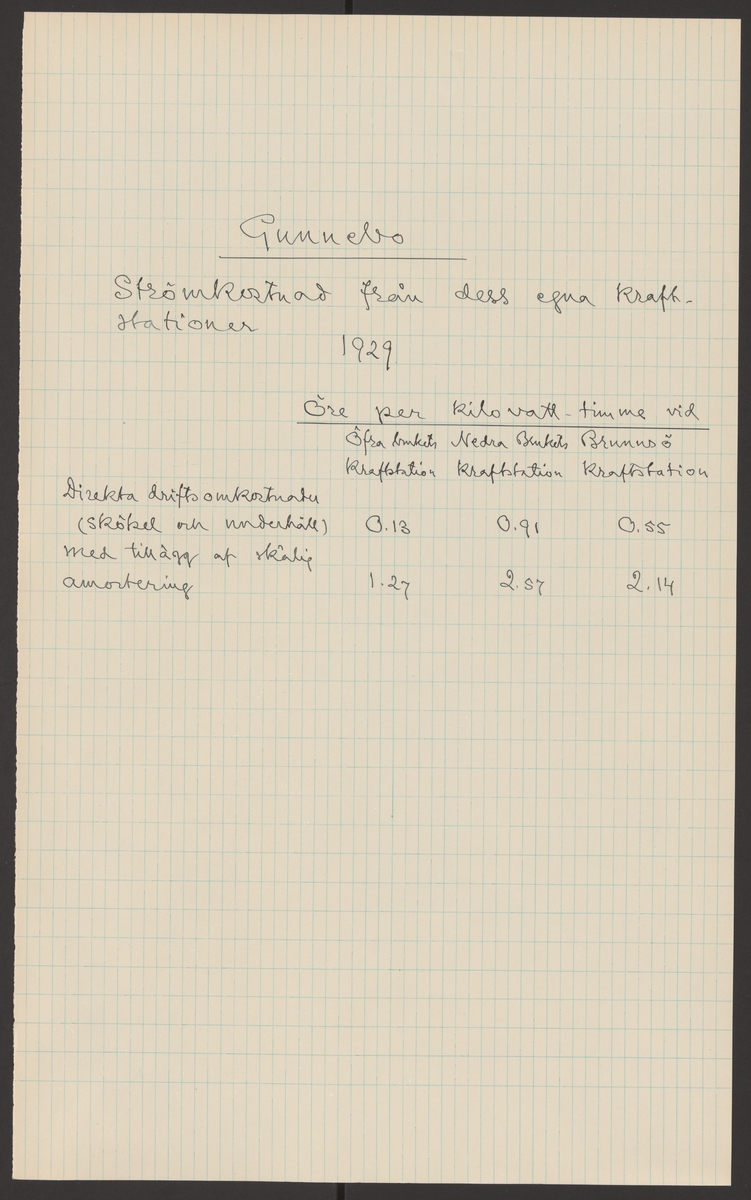 Gunnebo
Strömkostnad från dess egna kraft-
stationer
1929
Öre per kilovatt-timme vid
Öfra Nedra Brunnsö
kraftstation kraftstation kraftstation
Direkta driftsomkostnader
(skötsel och underhåll) 0.13 0.91 0.55
med tillägg af skälig
amortering 1.27 2.57 2.14